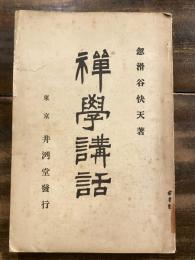 忽滑谷快天著
禪學講話
東京 井洌堂發行